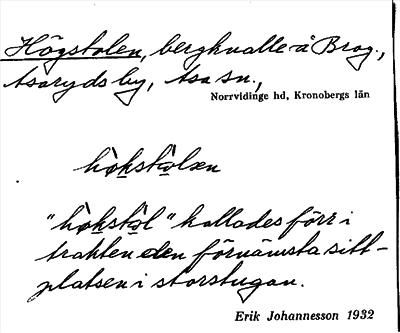 Högstolen, bergkvalle å Brag.,
Asaryds by, Asa sn.,
Norrvidinge hd, Kronobergs län
hö̀kstò̱lεn
"hö̀kstò̱l" kallades förr i
trakten den förnämsta sitt-
platsen i storstugan.
Erik Johannesson 1932